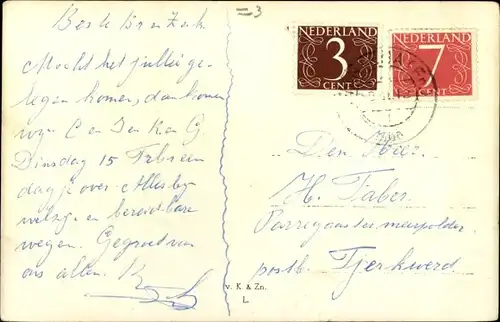 =3
Beste Br en Zus
Mocht het jullie ge-
legen komen, dan komen
wij C en J en K en G.
Dinsdag 15 Febr een
dagje over Alles by
welzyn en bereikbare
wegen. Gegroet van
ons allen.
NEDERLAND
3
CENT
NEDERLAND
7
CENT
Den Heer
H. Faber
Parregaaster meerpolder
postb. Tjerkwerd.
v. K & Zn.
L.